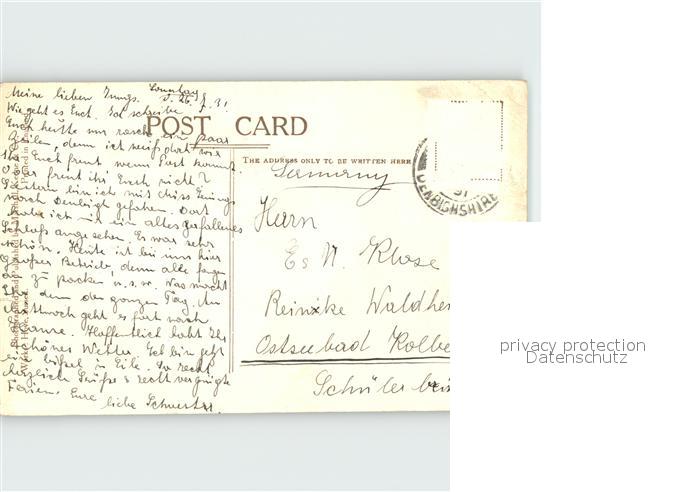 Meine lieben Jungs. Sonntag
d. 26. 31
Wie geht es Euch. Ich schreibe
Euch heute nur rasch ein paar
Zeilen, denn ich weiß doch wie
Ihr Euch freut wenn Post kommt.
Oder freut ihr Euch nicht?
Gestern bin ich mit Miss
nach Denbigh gefahren. Dort
habe ich mir ein altes zerfallenes
Schloß angesehen. Es war sehr
schön. Heute ist bei uns hier
großer Betrieb, denn alle fangen
an zu packen u.s.w. Was macht
Ihr denn den ganzen Tag. Am
Mittwoch geht es fort nach
Hoffentlich habt Ihr
schönes Wetter. Ich bin jetzt
ein bißchen in Eile. So recht
herzliche Grüße & recht vergnügte
Ferien. Eure liebe Schwester
POST CARD
THE ADDRESS ONLY TO BE WRITTEN HERE
Germany
DENBIGHSHIRE
31
Herrn
Es N. Klose
Reinike Waldhe
Ostseebad Kolbe
Schüler bei
privacy protection
Datenschutz